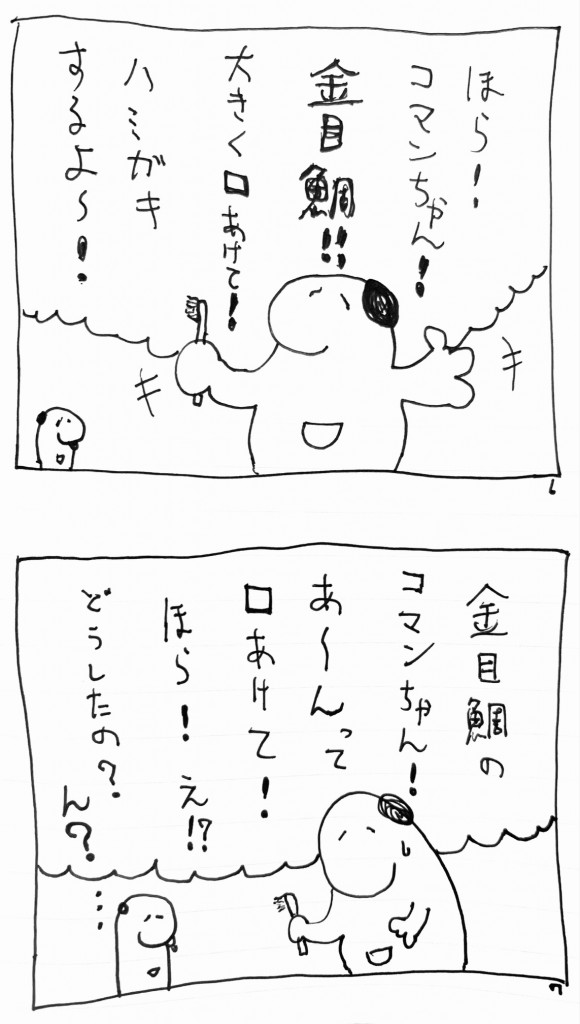 ほら!
コマンちゃん!
金目鯛!!
大きく口あけて!
ハミガキ
するよ〜!
キ
キ
6
金目鯛の
コマンちゃん!
あ〜んって
口あけて!
ほら!え!?
どうしたの?
ん?…
7